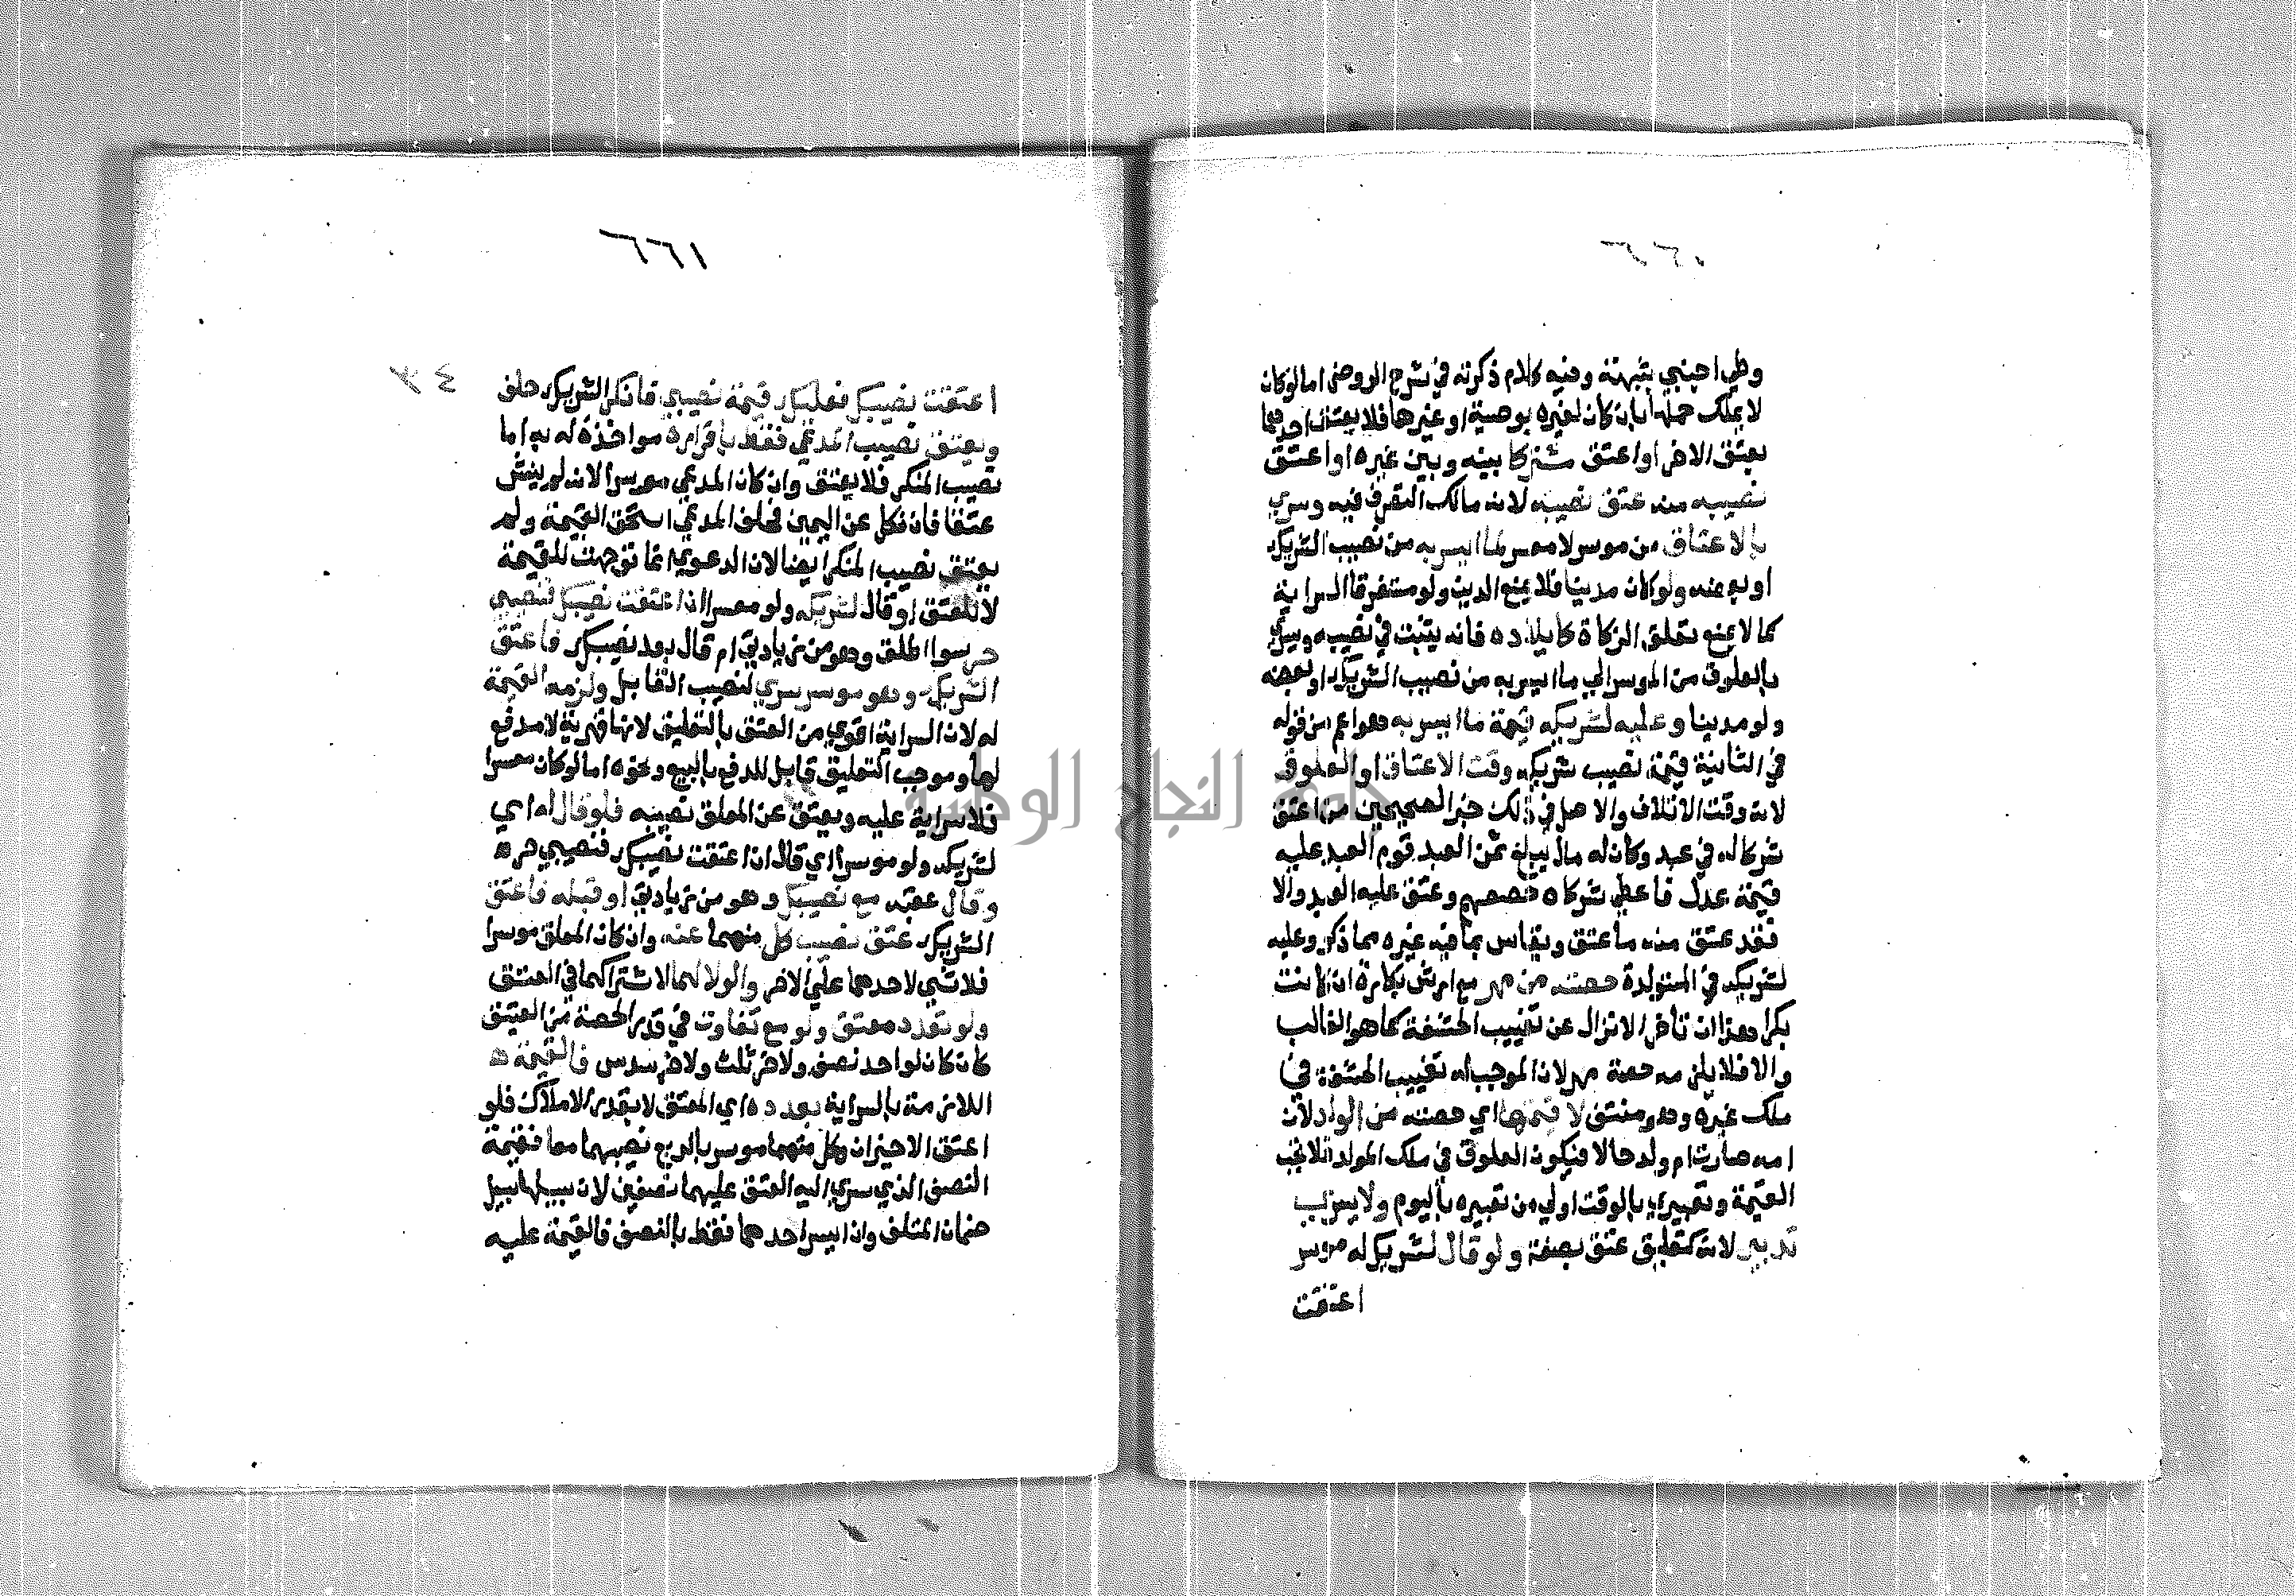 ٦٦٠
وطي اجنبي بشبهة وفيه كلام ذكرته في شرح الروض اما لو كان
لا يملك حملها بان كان لغيره بوصية او غيرها فلا يعتق احدهما
بعتق الاخر او اعتق مشتركا بينه وبين غيره او اعتق
نصيبه منه عتق نصيبه لانه مالك التصرف فيه وسري
بالاعتاق من موسر لا معسر لما ايسر به من نصيب الشريك
او بعضه ولو كان مدينا فلا يمنع الدين ولو مستغرقا السراية
كما لا يمنع تعلق الزكاة كايلاده فانه يثبت في نصيبه ويسري
بالعلوق من الموسر الي ما ايسر به من نصيب الشريك او بعضه
ولو مدينا وعليه لشريكه قيمة ما ايسر به هو اعم من قوله
في الثانية قيمة نصيب شريكه وقت الاعتاق او العلوق
لانه وقت الاتلاف والاصل في ذلك خبر الصحيحين من اعتق
شركا له في عبد وكان له مال يبلغ ثمن العبد قوم العبد عليه
قيمة عدل فاعطي شركاه حصصهم وعتق عليه العبد والا
فقد عتق منه ما عتق ويقاس بما فيه غيره مما ذكر وعليه
لشريكه في المستولدة حصته من مهر مع ارش بكارة ان كانت
بكرا وهذا ان تأخر الانزال عن تغييب الحشفة كما هو الغالب
والا فلا يلزمه حصة مهر لان الموجب له تغييب الحشفة في
ملك غيره وهو منتف لا قيمتها اي حصته من الولد لان
امه صارت ام ولد حالا فيكون العلوق في ملك الوالد فلا تجب
القيمة وتعبيري بالوقت اولي من تعبيره باليوم ولا يسري
تدبير لانه كتعليق عتق بصفة ولو قال لشريك له موسر
اعتقت
٦٦١
٣٤
اعتقت نصيبك فعليك قيمة نصيبي فانكر الشريك حلف
ويعتق نصيب المدعي فقط باقراره مواخذة له به اما
نصيب المنكر فلا يعتق وان كان المدعي موسرا لانه لم ينشئ
عتقا فان نكل عن اليمين فحلف المدعي استحق القيمة ولم
يعتق نصيب المنكر ايضا لان الدعوي انما توجهت للقيمة
لا للعتق او قال لشريكه ولو معسرا ان اعتقت نصيبك فنصيبي
حر سوا اطلق وهو من زيادتي ام قال بعد نصيبك فاعتق
الشريك وهو موسر يسري لنصيب القابل ولزمه القيمة
له لان السراية اقوي من العتق بالتعليق لانها قهرية لا مدفع
لها وموجب التعليق قابل للدفع بالبيع ونحوه اما لو كان معسرا
فلا سراية عليه ويعتق عن المعلق نصيبه فلو قال له اي
لشريكه ولو موسرا اي قال ان اعتقت نصيبك فنصيبي حر
وقال عقبه مع نصيبك وهو من زيادتي او قبله فاعتق
الشريك عتق نصيب كل منهما عنه وان كان المعلق موسرا
فلا شي لاحدهما علي الاخر والولا لهما لاشتراكهما في العتق
ولو تعدد معتق ولو مع تفاوت في قدر الحصة من العتيق
كان كان لواحد نصف ولاخر ثلث ولاخر سدس فالقيمة
اللازمة بالسراية بعدده اي المعتق لا بقدر الاملاك فلو
اعتق الاخيران وكل منهما موسر بالربع نصيبهما معا فقيمة
النصف الذي سري اليه العتق عليهما نصفين لان سبيلها سبيل
ضمان المتلف وان ايسر احدهما فقط بالنصف فالقيمة عليه
جامعة النجاح الوطنية